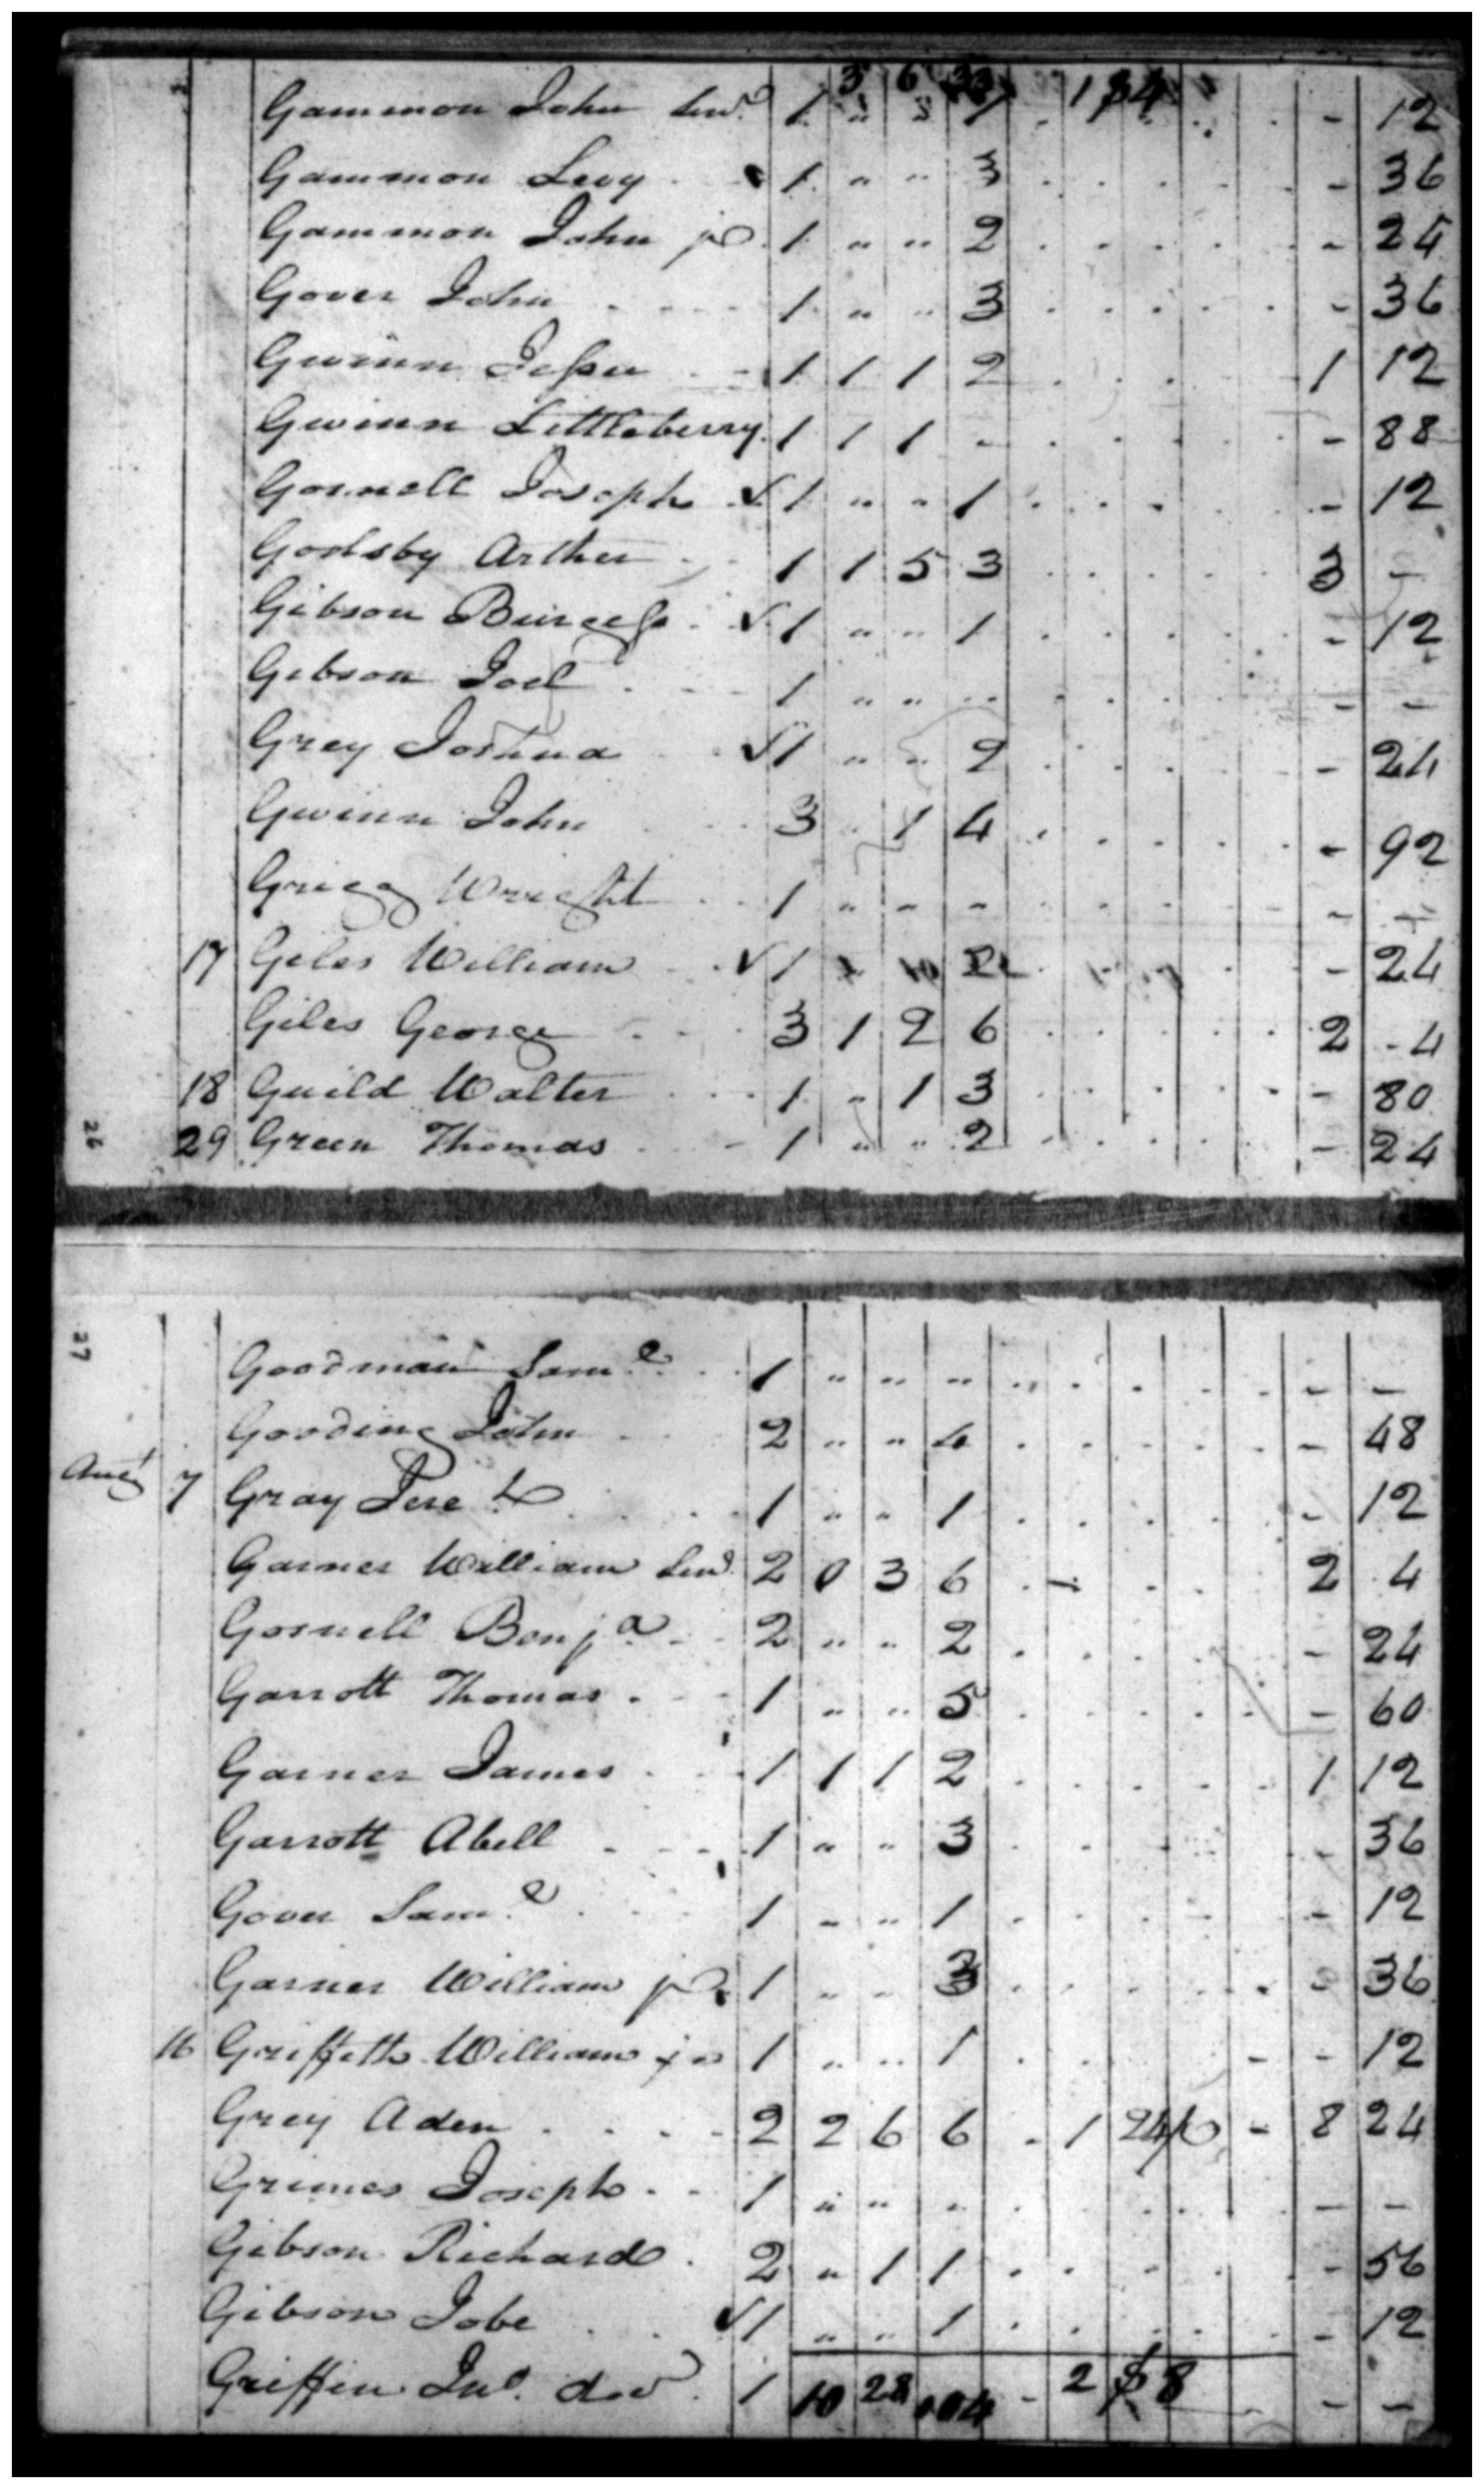 3 6 33 134
Gammon John Senr 1 " " 1 - 12
Gammon Levy 1 " " 3 - 36
Gammon John jr 1 " " 2 - 24
Gover John 1 " " 3 - 36
Gwinn Jesse 1 1 1 2 1 12
Gwinn Littleberry 1 1 1 - - 88
Gosnell Joseph ✓ 1 " " 1 - 12
Goolsby Arther 1 1 5 3 3 -
Gibson Burgess ✓ 1 " " 1 - 12
Gibson Joel 1 " " " - -
Grey Joshua ✓ 1 " " 2 - 24
Gwinn John 3 " 1 4 - 92
Grigg Wright 1 " - - - -
17 Giles William ✓ 1 2 - 24
Giles George 3 1 2 6 2 - 4
18 Guild Walter 1 - 1 3 - 80
29 Green Thomas 1 " " 2 - 24
26
27
Goodman Saml 1 " " " - -
Gooding John 2 " " 4 - 48
Augt 7 Gray Jere h 1 " " 1 - 12
Garner William Senr 2 0 3 6 2 4
Gosnell Benja 2 " " 2 - 24
Garrott Thomas 1 " " 5 - 60
Garner James 1 1 1 2 1 12
Garrott Abell 1 " " 3 - 36
Gover Saml 1 " " 1 - 12
Garner William jr 1 " " 3 - 36
16 Griffeth William jr 1 " " 1 - 12
Grey Aden 2 2 6 6 1 24/6 - 8 24
Grimes Joseph 1 " " " - -
Gibson Richard 2 " 1 1 - 56
Gibson Jobe ✓ 1 " " 1 - 12
Griffin Jno. 1 10 28 104 - 2 8 - -